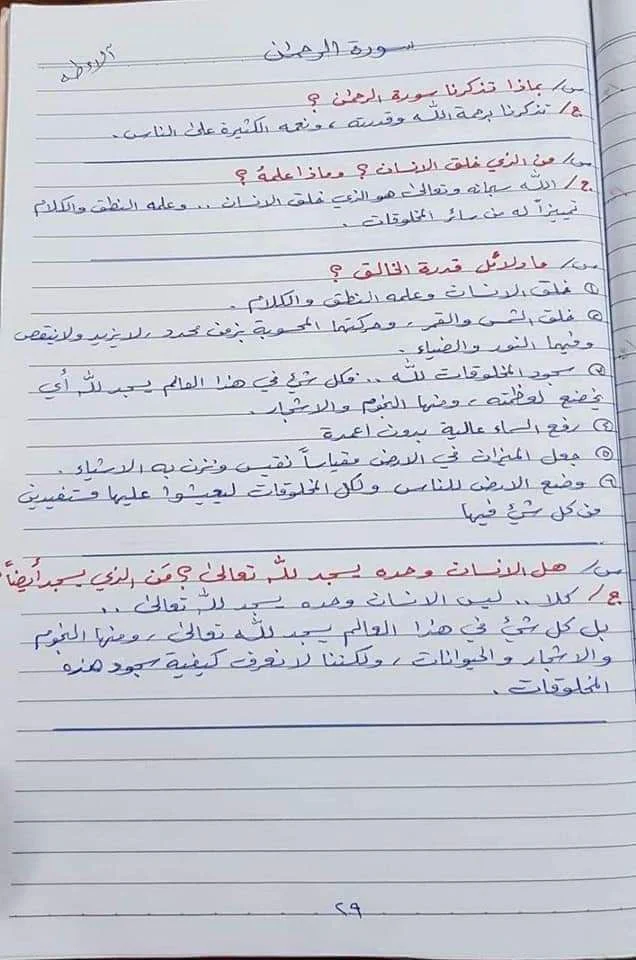 سورة الرحمن
س/ بماذا تذكرنا سورة الرحمن ؟
ج/ تذكرنا برحمة الله وقدرته ، ونعمه الكثيرة على الناس .
س/ من الذي خلق الانسان ؟ وماذا علمهُ ؟
ج/ الله سبحانه وتعالى هو الذي خلق الانسان .. وعلمه النطق والكلام
تمييزاً له من سائر المخلوقات .
س/ ما دلائل قدرة الخالق ؟
١ خلق الانسان وعلمه النطق والكلام .
٢ خلق الشمس والقمر ، وحركتهما المحسوبة بزمن محدد ، لا يزيد ولا ينقص
وفيهما النور والضياء .
٣ سجود المخلوقات لله .. فكل شيء في هذا العالم يسجد لله أي
يخضع لعظمته ، ومنها النجوم والاشجار .
٤ رفع السماء عالية بدون اعمدة
٥ جعل الميزان في الارض مقياساً نقيس ونزن به الاشياء .
٦ وضع الارض للناس ولكل المخلوقات ليعيشوا عليها مستفيدين
من كل شيء فيها
س/ هل الانسان وحده يسجد لله تعالى ؟ مَن الذي يسجد أيضاً
ج/ كلا .. ليس الانسان وحده يسجد لله تعالى ..
بل كل شيء في هذا العالم يسجد لله تعالى ، ومنها النجوم
والاشجار والحيوانات ، ولكننا لا نعرف كيفية سجود هذه
المخلوقات .
٢٩